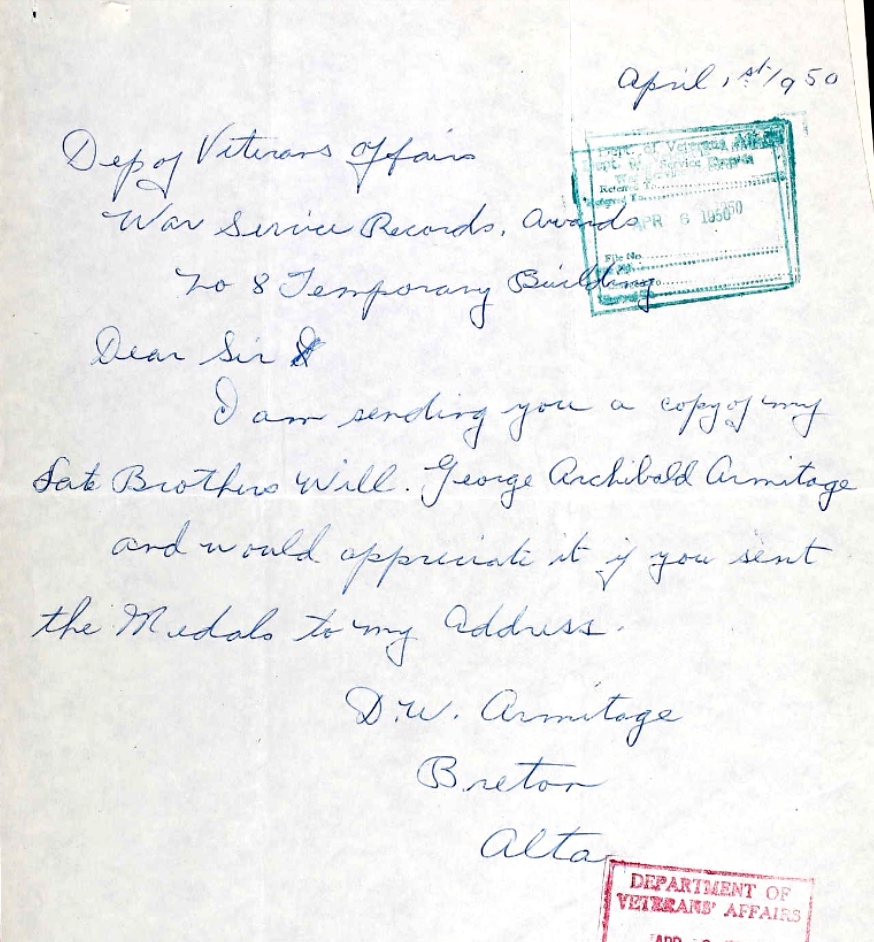 April, 1st/1950
Dep of Veterans Affairs
War Service Records, Awards
No 8 Temporary Building
Dept. of Veterans Affairs
War Service Records
Referred To
APR 6 1950
File No.
Dear Sir
I am sending you a copy of my
Late Brothers Will. George Archibald Armitage
and would appreciate it if you sent
the Medals to my Address.
D.W. Armitage
Breton
Alta
DEPARTMENT OF
VETERANS' AFFAIRS
APR